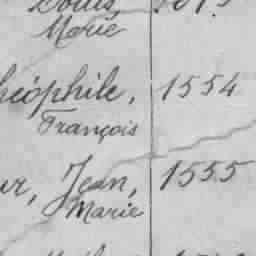 Louis,
Marie
héophile, 1554
François
ur, Jean, 1555
Marie